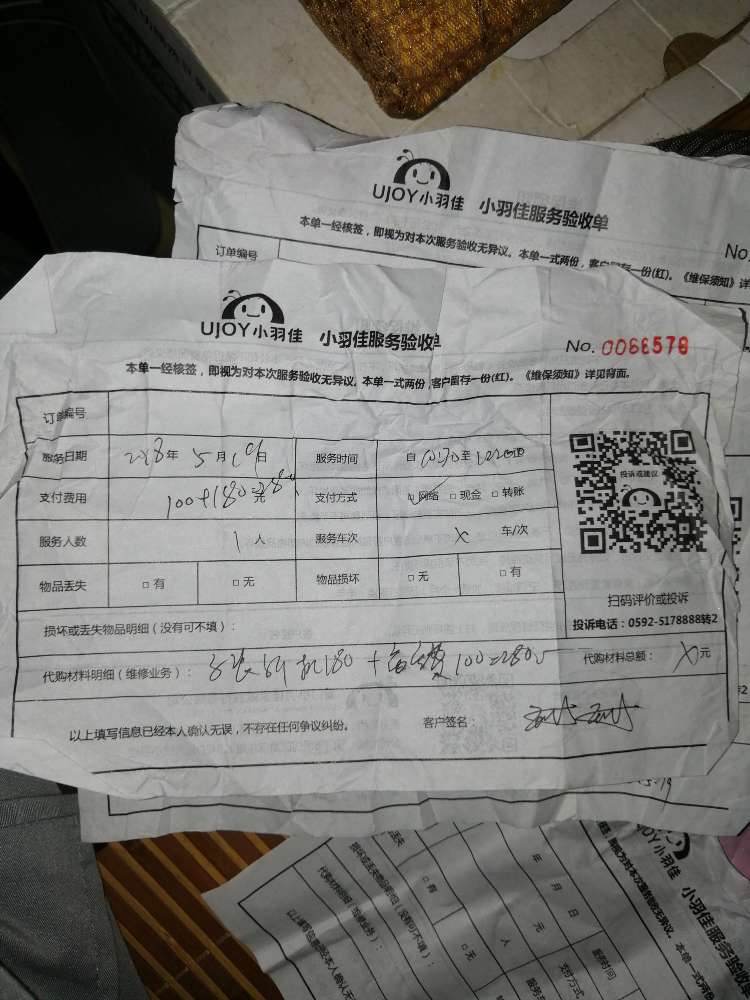 UJOY小羽佳 小羽佳服务验收单
No.
本单一经核签，即视为对本次服务验收无异议。本单一式两份，客户留存一份(红)。《维保须知》详
订单编号
UJOY小羽佳 小羽佳服务验收单
No. 0066578
本单一经核签，即视为对本次服务验收无异议。本单一式两份，客户留存一份(红)。《维保须知》详见背面。
订单编号
服务日期 年 5 月 日 服务时间 自 至
支付费用 100+180=280元 支付方式 网络 □ 现金 □ 转账
服务人数 1 人 服务车次 X 车/次
物品丢失 □ 有 □ 无 物品损坏 □ 无 □ 有
投诉或建议
扫码评价或投诉
投诉电话：0592-5178888转2
损坏或丢失物品明细（没有可不填）：
代购材料明细（维修业务）： 180 + 100=280 代购材料总额： X 元
以上填写信息已经本人确认无误，不存在任何争议纠纷。 客户签名：
UJOY小羽佳 小羽佳服务验
本单一
年 月 日 服务时间
元 支付方式
人 服务
□ 有 □ 无
损坏或丢失物品明细（没有可不填）：
代购材料明细（维修业务）：
以上填写信息已经本人确认无